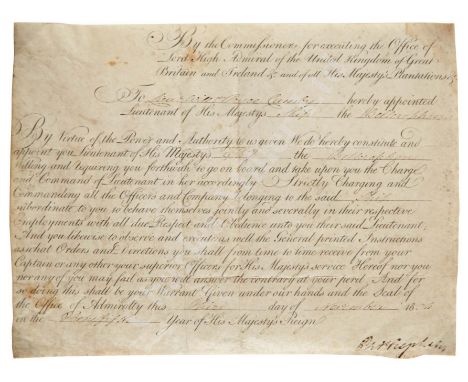 By the Commissioners for executing the Office of
Lord High Admiral of the United Kingdom of Great
Britain and Ireland &c and of all His Majesty's Plantations &c
To hereby appointed
Lieutenant of His Majesty's Ship the
By Virtue of the Power and Authority to us given We do hereby constitute and
appoint you Lieutenant of His Majesty's Ship the
Willing and requiring you forthwith to go on board and take upon you the Charge
and Command of Lieutenant in her accordingly Strictly Charging and
Commanding all the Officers and Company belonging to the said Ship
subordinate to you to behave themselves jointly and severally in their respective
Employments with all due Respect and Obedience unto you their said Lieutenant
And you likewise to observe and execute as well the General printed Instructions
as what Orders and Directions you shall from time to time receive from your
Captain or any other your superior Officers for His Majesty's service Hereof nor you
nor any of you may fail as you will answer the contrary at your peril And for
so doing this shall be your Warrant Given under our hands and the Seal of
the Office of Admiralty this day of November
in the Year of His Majesty's Reign